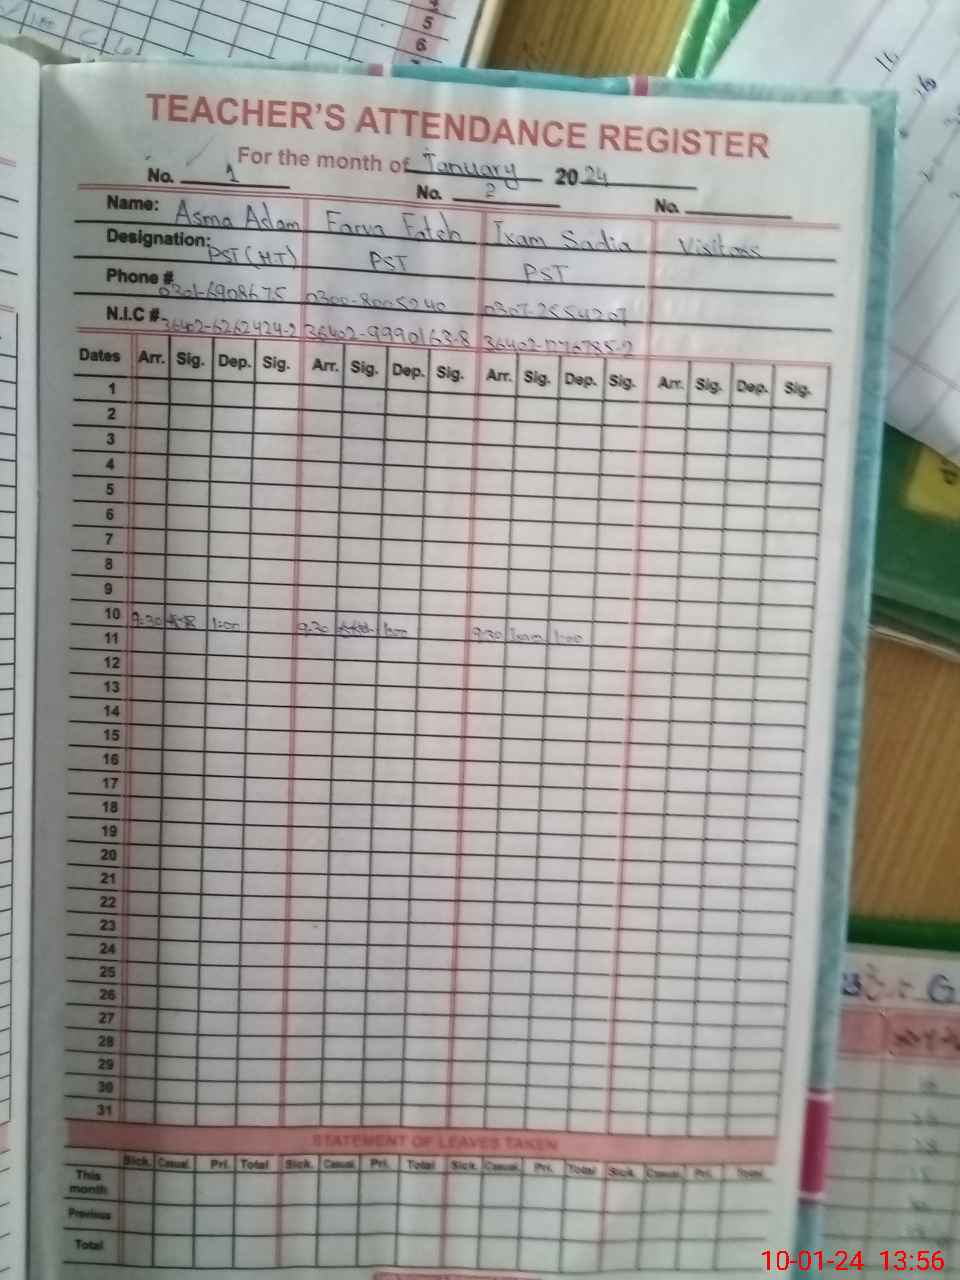 TEACHER'S ATTENDANCE REGISTER
For the month of January 2024
No. 1 No. 2 No.
Name: Asma Adam Farva Fateh Ixam Sadia Visitors
Designation: PST (HT) PST PST
Phone # 0301-6908675 0300-8005240 0307-2554207
N.I.C #- 36402-6262424-2 36402-9990163-8
Dates Arr. Sig. Dep. Sig. Arr. Sig. Dep. Sig. Arr. Sig. Dep. Sig. Arr. Sig. Dep. Sig.
1
2
3
4
5
6
7
8
9
10 9:30 1:00 9:30 1:00 9:30 Ixam 1:00
11
12
13
14
15
16
17
18
19
20
21
22
23
24
25
26
27
28
29
30
31
STATEMENT OF LEAVES TAKEN
Sick. Casual. Pri. Total Sick. Casual. Pri. Total Sick. Casual. Pri. Total Sick. Casual. Pri. Total
This month
Previous
Total
10-01-24 13:56